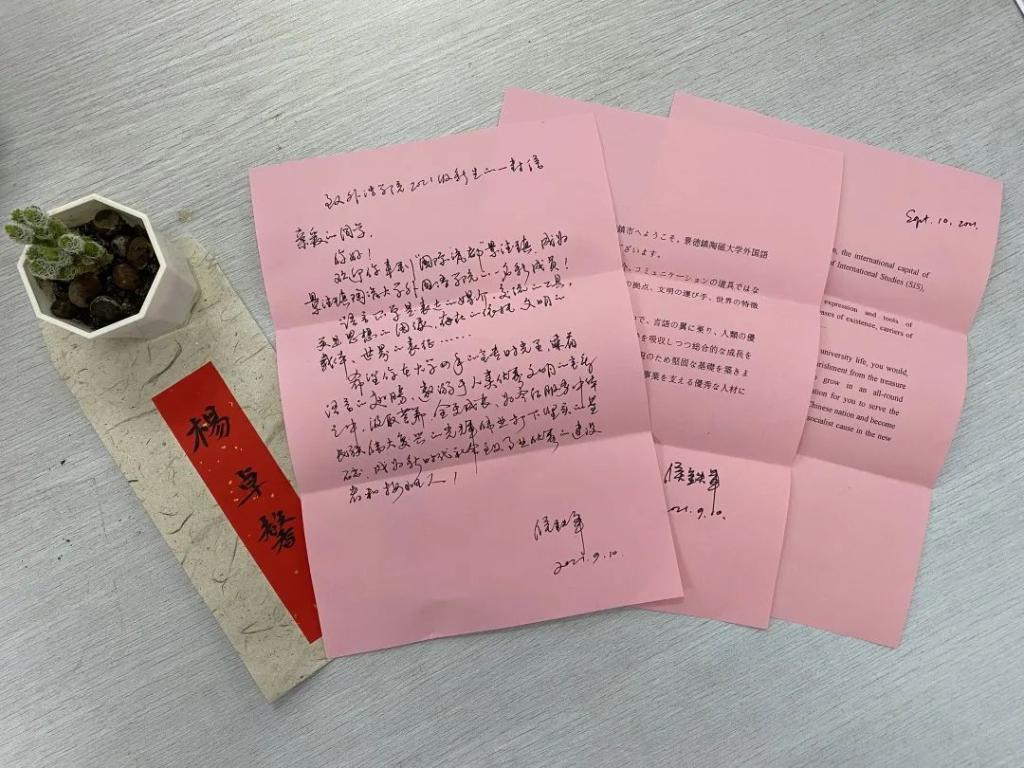 楊卓馨
致外语学院2021级新生的一封信
亲爱的同学:
你好!
欢迎你来到"国际瓷都"景德镇,成为
景德镇陶瓷大学外国语学院的一名新成员!
语言不仅是表达的媒介、交流的工具,
更是思想的图像、存在的依托、文明的
载体、世界的表征……
希望你在大学四年的宝贵时光里,乘着
语言的翅膀,遨游于人类优秀文明的
之中,汲取营养,全面成长,为今后服务中华
民族伟大复兴的光辉伟业打下坚实的基
础,成为新时代社会主义事业优秀的建设
者和接班人!
侯铁军
2021.9.10.
鎮市へようこそ,景徳鎮陶磁大学外国語
ざいます。
、コミュニケーションの道具ではな
の拠点、文明の運び手、世界の特徴
で、言語の翼に乗り、人類の優
を吸収しつつ総合的な成長を
現のため堅固な基礎を築きま
事業を支える優秀な人材に
侯鉄軍
2021.9.10.
Sept. 10. 2021.
, the international capital of
f International Studies (SIS),
expression and tools of
enses of existence, carriers of
university life, you would,
urishment from the treasure
grow in an all-round
ation for you to serve the
Chinese nation and become
socialist cause in the new